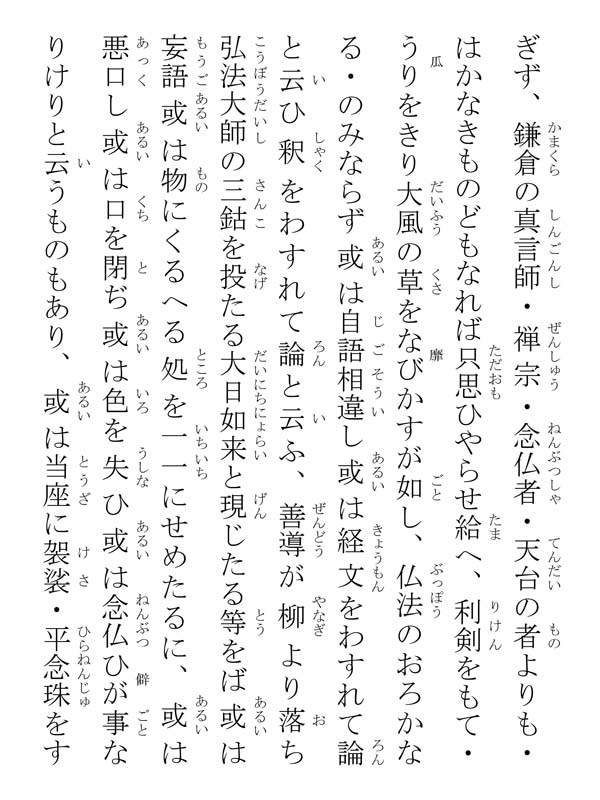 ぎず、鎌倉の真言師・禅宗・念仏者・天台の者よりも・
はかなきものどもなれば只思ひやらせ給へ、利剣をもて・
うりをきり大風の草をなびかすが如し、仏法のおろかな
る・のみならず或は自語相違し或は経文をわすれて論
と云ひ釈をわすれて論と云ふ、善導が柳より落ち
弘法大師の三鈷を投たる大日如来と現じたる等をば或は
妄語或は物にくるへる処を一一にせめたるに、或は
悪口し或は口を閉ぢ或は色を失ひ或は念仏ひが事な
りけりと云うものもあり、或は当座に袈裟・平念珠をす